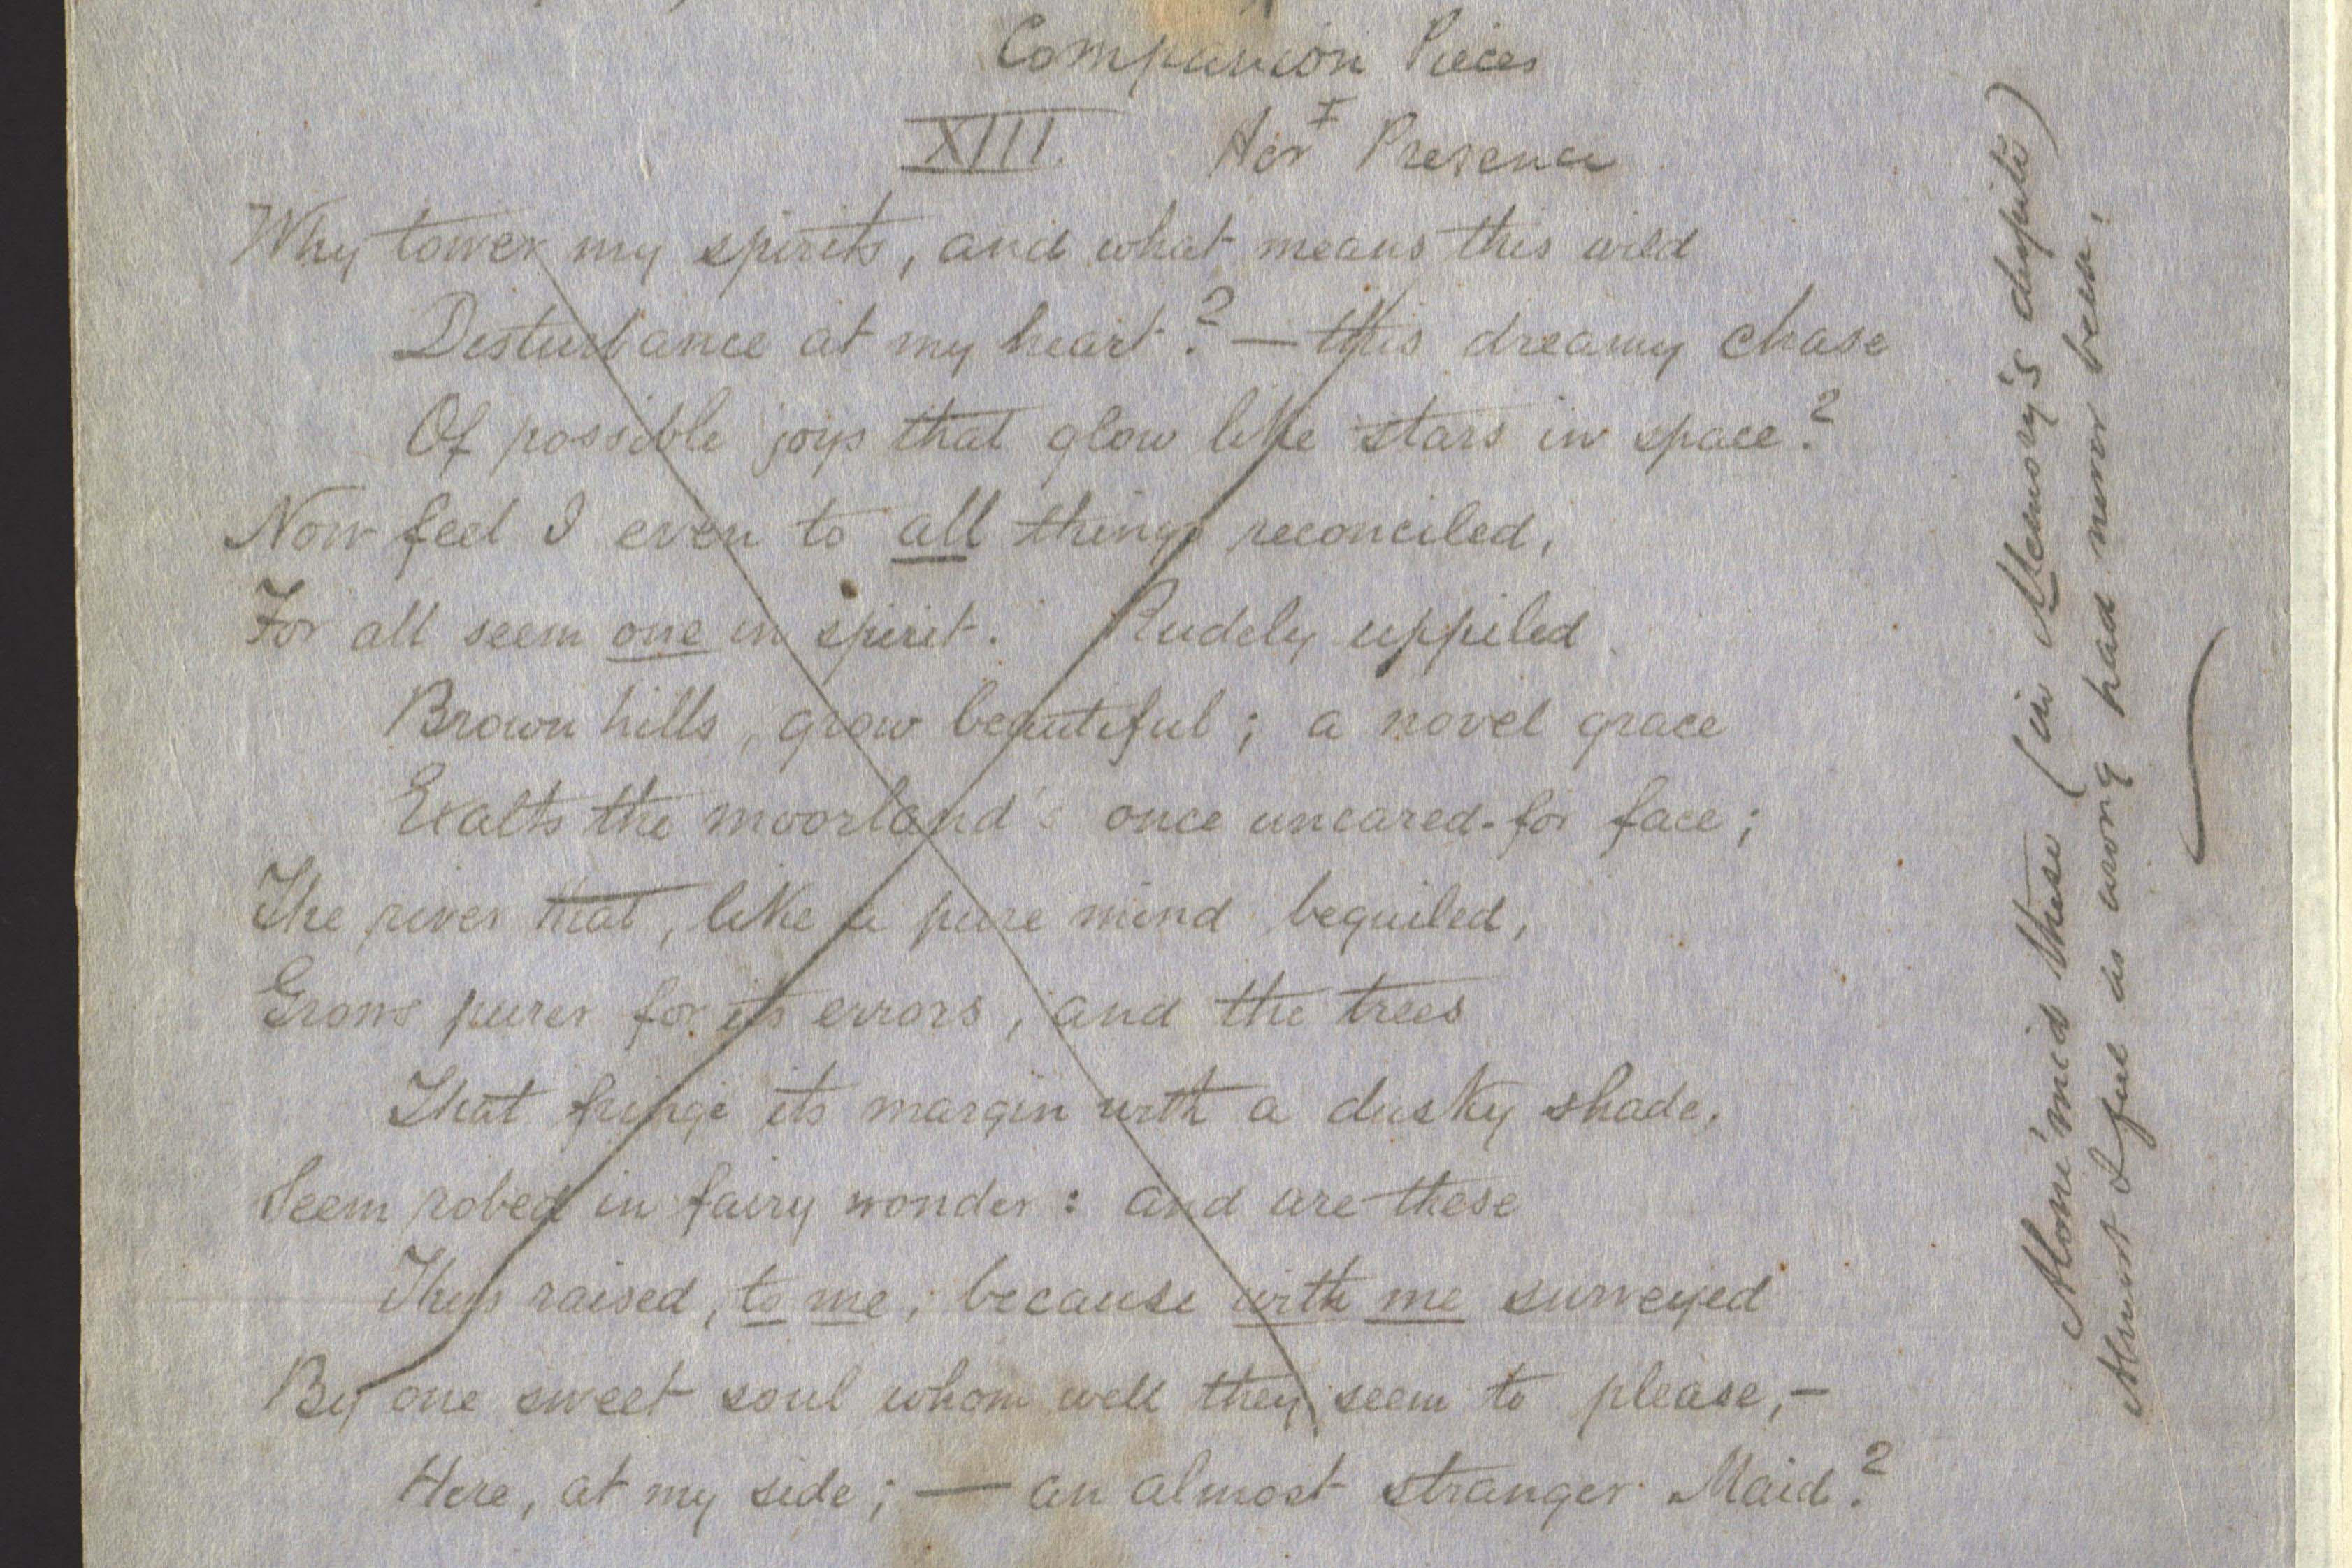 Companion Pieces
I
XIII. Her Presence
Why tower my spirits, and what means this wild
Disturbance at my heart? — this dreamy chase
Of possible joys that glow like stars in space?
Now feel I even to all things reconciled,
For all seem one in spirit. Rudely uppiled
Brown hills, grow beautiful; a novel grace
Exalts the moorland's once uncared-for face;
The river that, like a pure mind beguiled,
Grows purer for its errors, and the trees
That fringe its margin with a dusky shade,
Seem robed in fairy wonder: and are these
Thus raised, to me, because with me surveyed
By one sweet soul whom well they seem to please, —
Here, at my side; — an almost stranger Maid?
Alone 'mid these (in Memory's despite)
Almost I feel as wrong had never been,